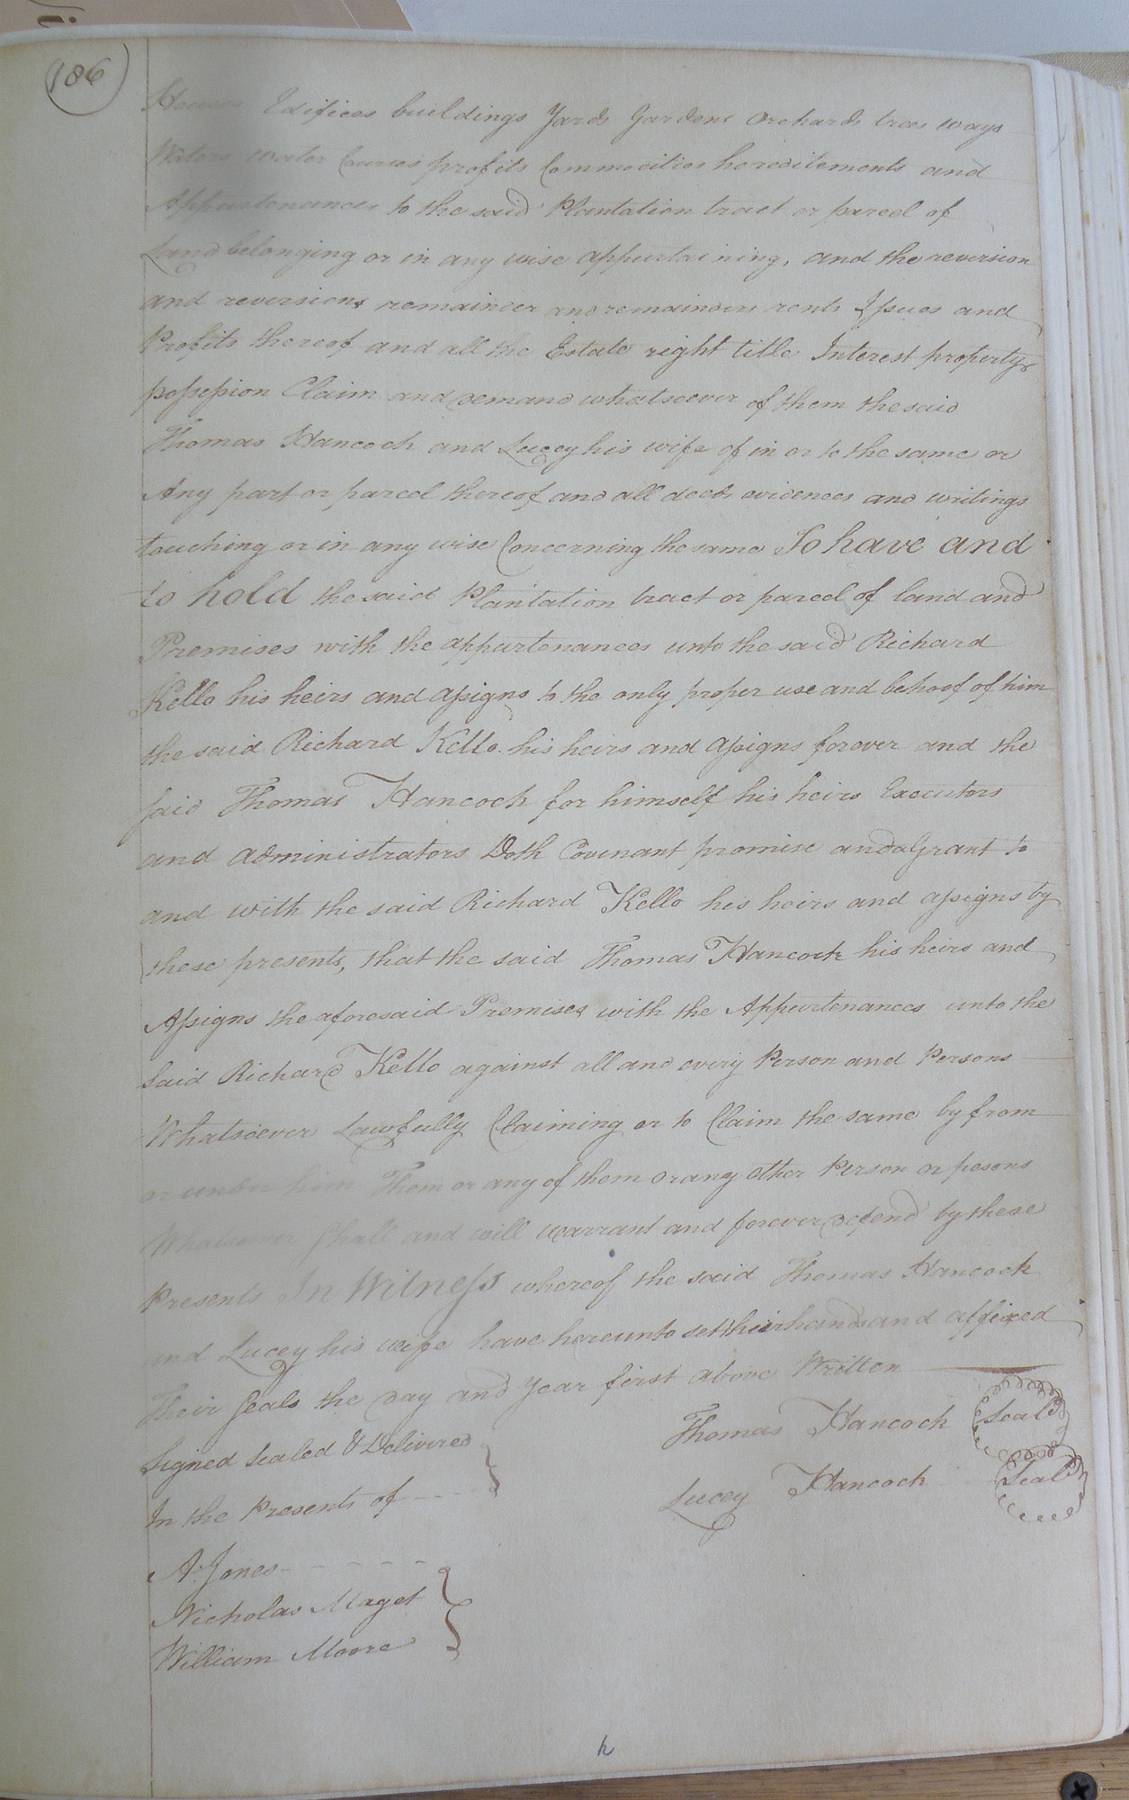 186
Houses Edifices buildings Yards Gardens Orchards trees ways
Waters water Courses profits Commodities hereditements and
Appurtenances to the said Plantation tract or parcel of
Land belonging or in any wise appurtaining, and the reversion
and reversions remainder and remainders rents Issues and
Profits thereof and all the Estate right title Interest property
possession Claim and demand whatsoever of them the said
Thomas Hancock and Lucey his wife of in or to the same or
Any part or parcel thereof and all deeds evidences and writings
touching or in any wise Concerning the same To have and
to hold the said Plantation tract or parcel of land and
Premises with the appurtenances unto the said Richard
Kello his heirs and assigns to the only proper use and behoof of him
the said Richard Kello his heirs and assigns forever and the
said Thomas Hancock for himself his heirs Executors
and administrators Doth Covenant promise and Grant to
and with the said Richard Kello his heirs and assigns by
these presents, that the said Thomas Hancock his heirs and
Assigns the aforesaid Premises with the Appurtenances unto the
Said Richard Kello against all and every Person and Persons
Whatsoever Lawfully Claiming or to Claim the same by from
or under him Them or any of them or any other Person or pesons
Whatsoever shall and will warrant and forever defend by these
Presents In Witness whereof the said Thomas Hancock
and Lucey his wife have hereunto set their hands and affixed
Their Seals the day and Year first above Written
Signed Sealed & Delivered
In the Presents of
Thomas Hancock Seal
Lucey Hancock Seal
A. Jones
Nicholas Maget
William Moore